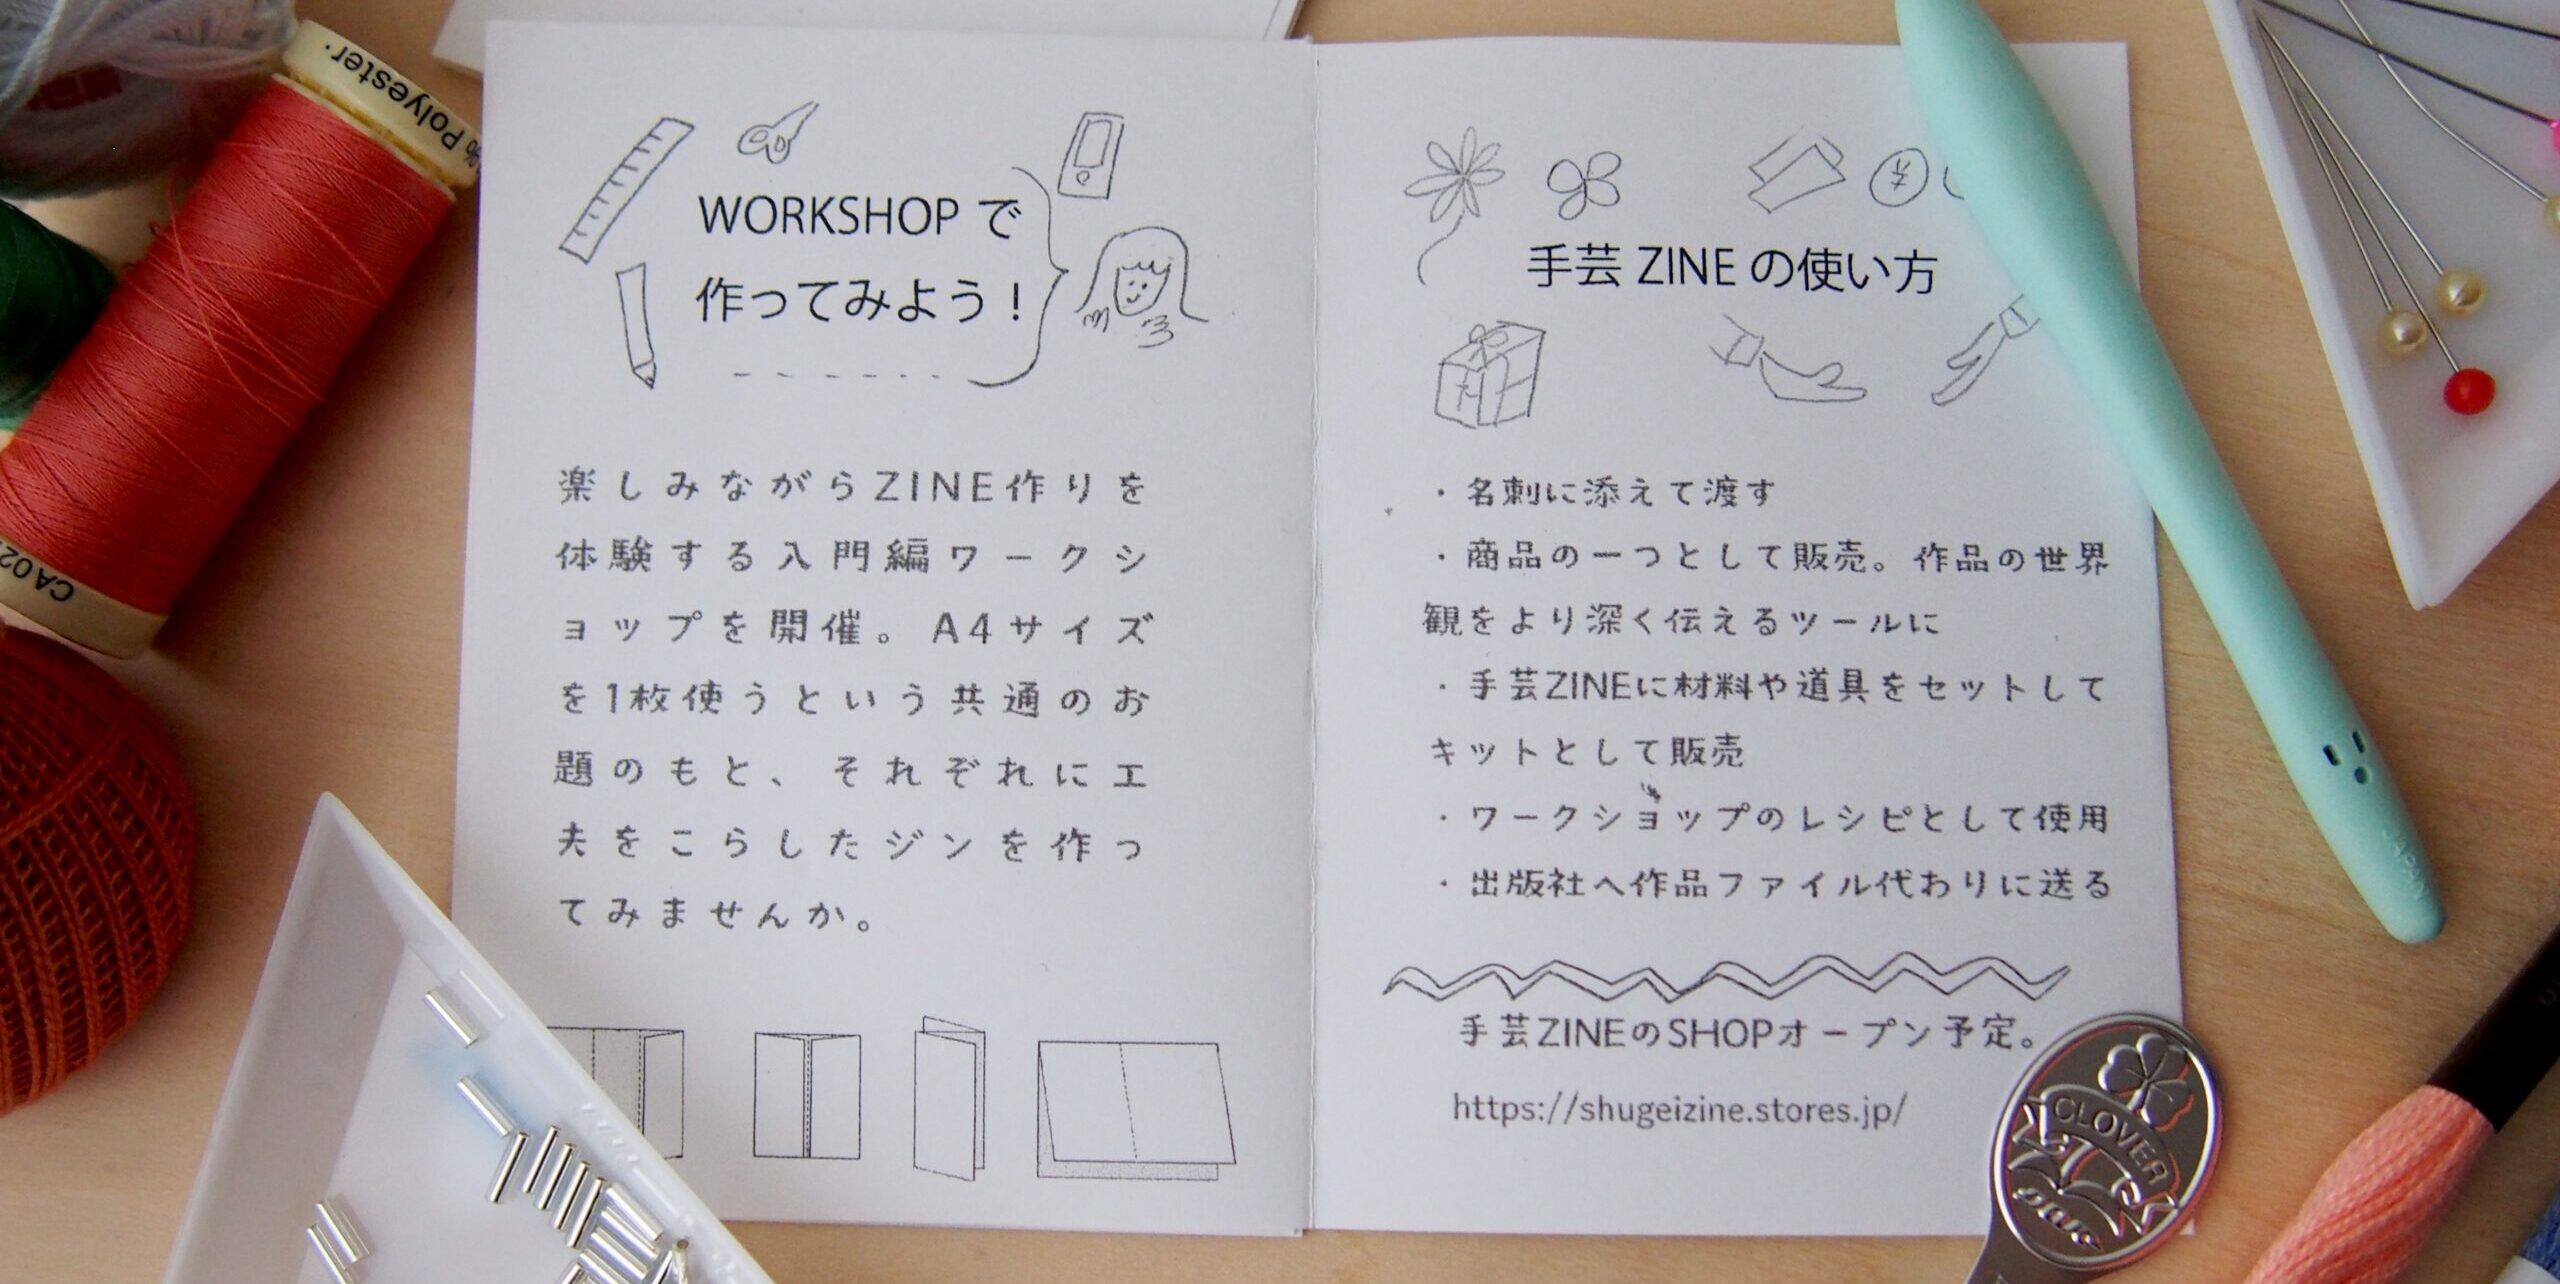 % Polyester.
CA02
WORKSHOP で
作ってみよう！
楽しみながらZINE作りを
体験する入門編ワークシ
ョップを開催。A4サイズ
を1枚使うという共通のお
題のもと、それぞれにエ
夫をこらしたジンを作っ
てみませんか。
手芸 ZINE の使い方
・名刺に添えて渡す
・商品の一つとして販売。作品の世界
観をより深く伝えるツールに
・手芸ZINEに材料や道具をセットして
キットとして販売
・ワークショップのレシピとして使用
・出版社へ作品ファイル代わりに送る
手芸ZINEのSHOPオープン予定。
https://shugeizine.stores.jp/
JAPAN
CLOVER